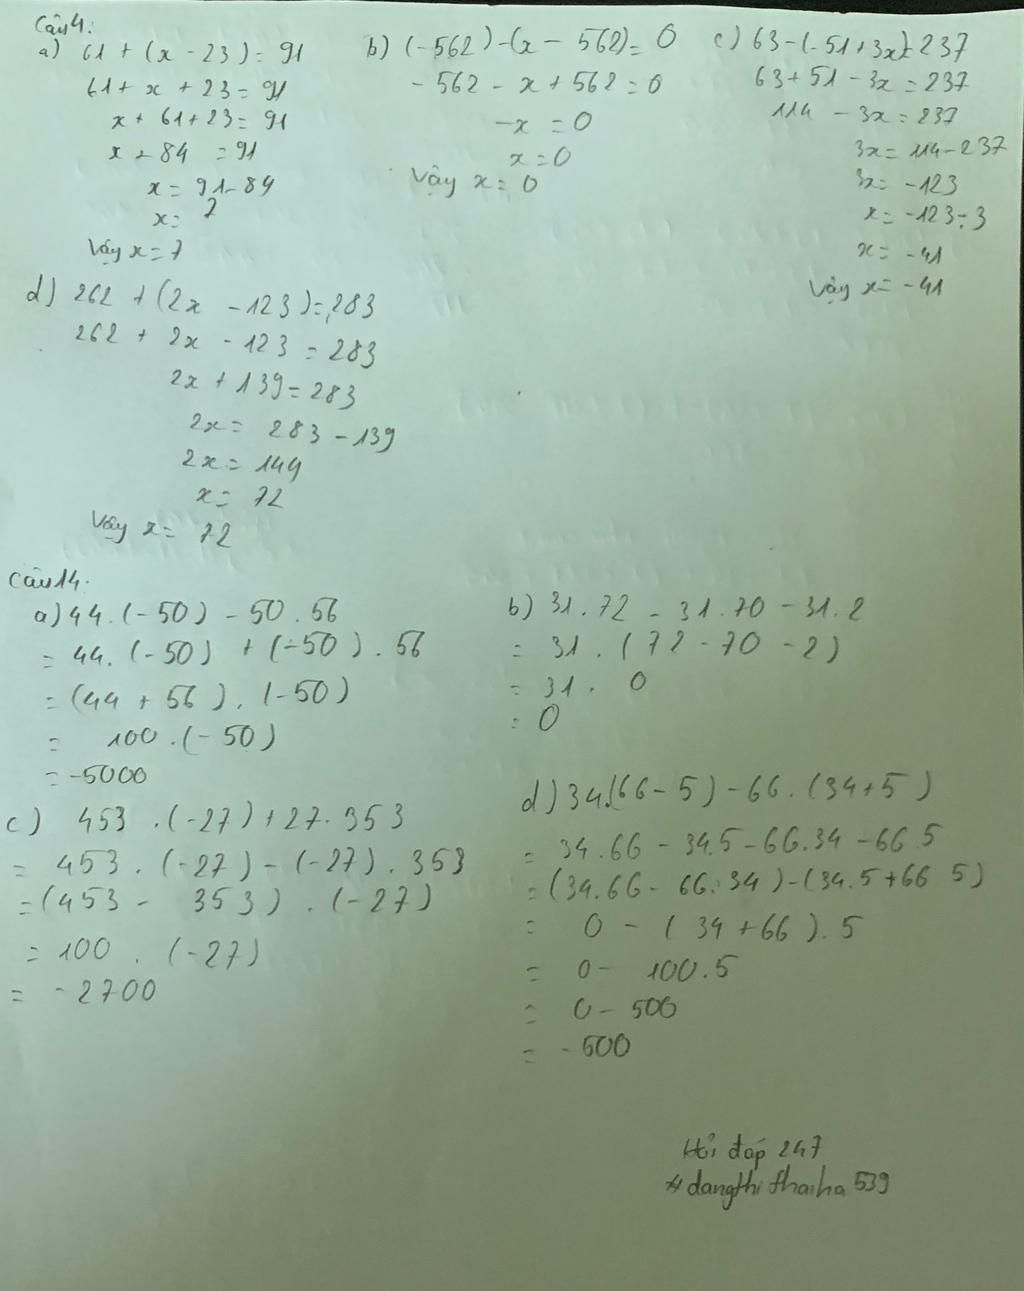 Câu 4:
a) 61 + (x - 23) = 91
61 + x + 23 = 91
x + 61 + 23 = 91
x + 84 = 91
x = 91 - 84
x = 7
Vậy x = 7
b) (-562) - (x - 562) = 0
- 562 - x + 562 = 0
-x = 0
x = 0
Vậy x = 0
c) 63 - (-51 + 3x) = 237
63 + 51 - 3x = 237
114 - 3x = 237
3x = 114 - 237
3x = -123
x = -123 : 3
x = -41
Vậy x = -41
d) 262 + (2x - 123) = 283
262 + 2x - 123 = 283
2x + 139 = 283
2x = 283 - 139
2x = 144
x = 72
Vậy x = 72
Câu 14:
a) 44 . (-50) - 50 . 56
= 44 . (-50) + (-50) . 56
= (44 + 56) . (-50)
= 100 . (-50)
= -5000
b) 31 . 72 - 31 . 70 - 31 . 2
= 31 . (72 - 70 - 2)
= 31 . 0
= 0
c) 453 . (-27) + 27 . 353
= 453 . (-27) - (-27) . 353
= (453 - 353) . (-27)
= 100 . (-27)
= -2700
d) 34.(66 - 5) - 66 . (34 + 5)
= 34 . 66 - 34.5 - 66.34 - 66.5
= (34.66 - 66.34) - (34.5 + 66 5)
= 0 - (34 + 66) . 5
= 0 - 100.5
= 0 - 500
= -500
Hỏi đáp 247
#dangthi thaiha 539